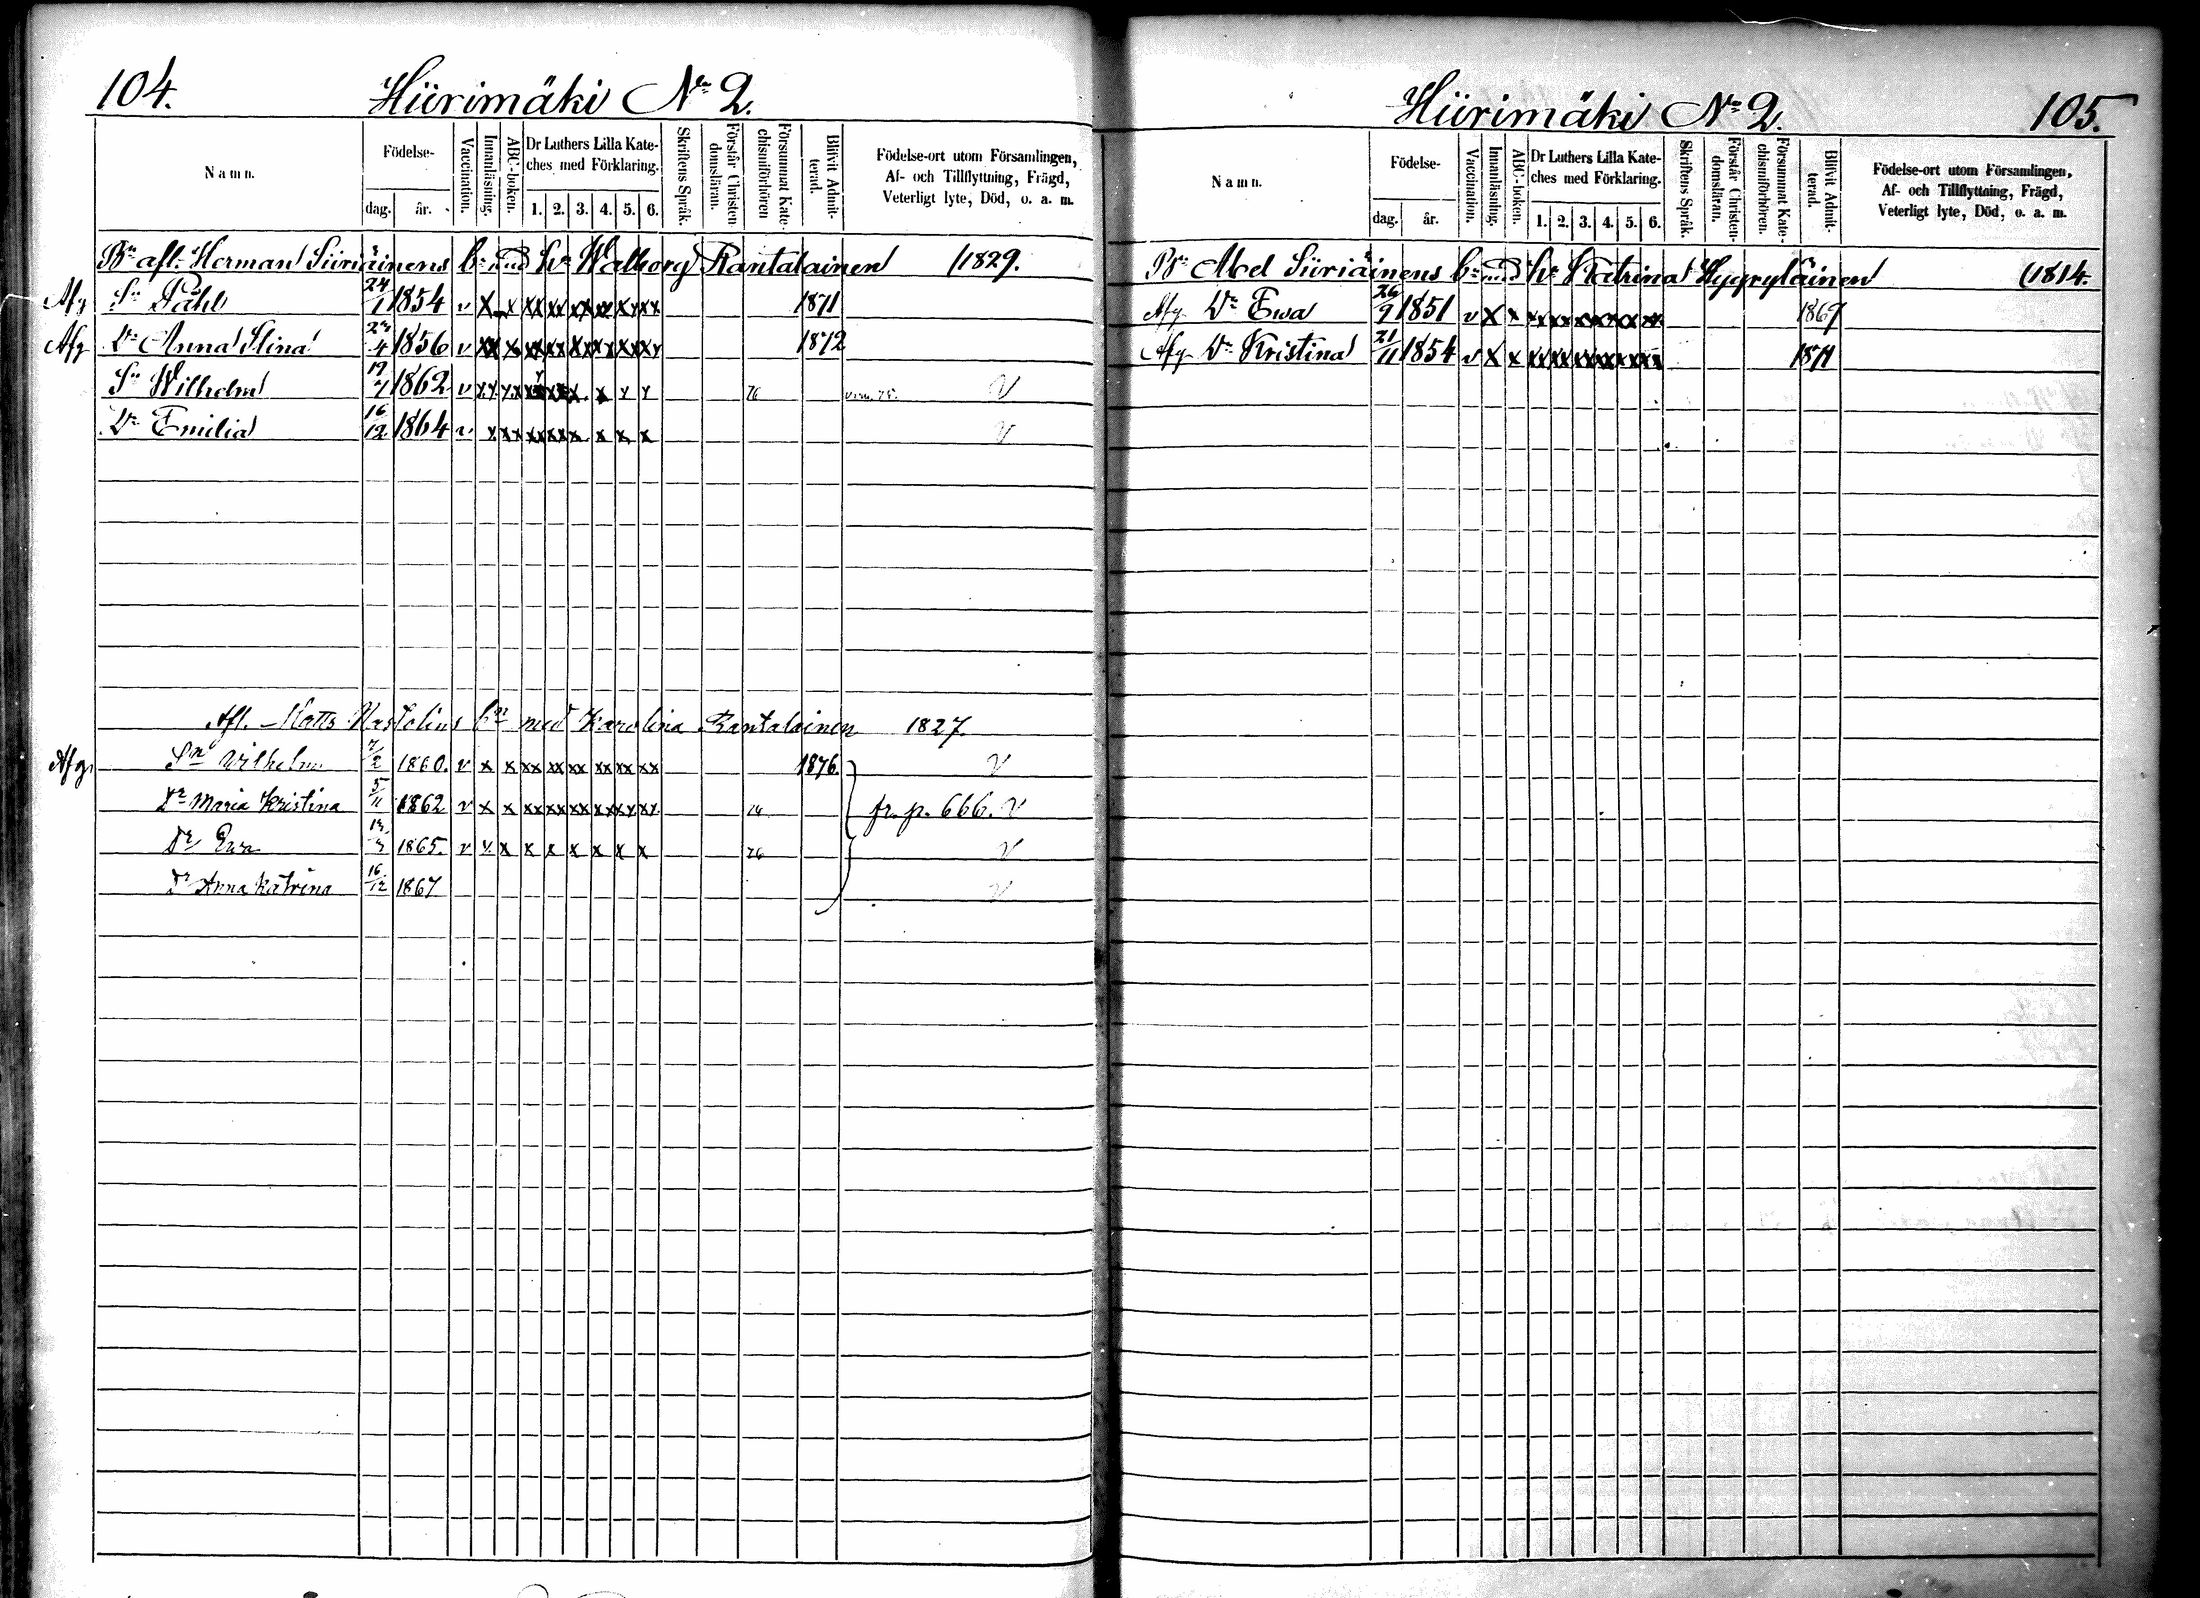 104. Hiirimäki No 2.
Namn.
Födelse-
dag. år.
Vaccination.
Innanläsning.
ABC-boken.
Dr Luthers Lilla Kate-
ches med Förklaring.
1. 2. 3. 4. 5. 6.
Skriftens Språk.
Förstår Christen-
domsläran.
Försummat Kate-
chismiförhören
Blifvit Admit-
terad.
Födelse-ort utom Församlingen,
Af- och Tillflyttning, Frägd,
Veterligt lyte, Död, o. a. m.
Bn afl. Herman Siiriäinens bn med h. Walborg Rantalainen 1829.
Afg Sn Påhl 24/1 1854 v x x xx xx xx xx xx xx 1871
Afg Dr Anna Stina 4 1856 v xx x xx xx xx xx xx xx 1872
Sn Wilhelm 1862 v 76 v
Dr Emilia 16/12 1864 v x xx xx xx x x x x v
Afl. Matts Nastolins bn med Karolina Rantalainen 1827.
Afg. Sn Wilhelm 2 1860. v x x xx xx xx xx xx xx 1876. v
Dr Maria Kristina 5/11 1862 v x x xx xx xx xx xx xx fr. p. 666. v
Dr Ewa 1865. v x x x x x x x x 76 v
Dr Anna Katrina 16/12 1867 v
Hiirimäki No 2. 105.
Namn.
Födelse-
dag. år.
Vaccination.
Innanläsning.
ABC-boken.
Dr Luthers Lilla Kate-
ches med Förklaring.
1. 2. 3. 4. 5. 6.
Skriftens Språk.
Förstår Christen-
domsläran.
Försummat Kate-
chismiförhören.
Blifvit Admit-
terad.
Födelse-ort utom Församlingen,
Af- och Tillflyttning, Frägd,
Veterligt lyte, Död, o. a. m.
Bn Abel Siiriäinens bn med h. Katrina Hyyryläinen 1814.
Afg. Dr Ewa 26/9 1851 v x x xx xx xx xx xx xx 1869
Afg. Dr Kristina 21/11 1854 v x x xx xx xx xx xx xx 1871